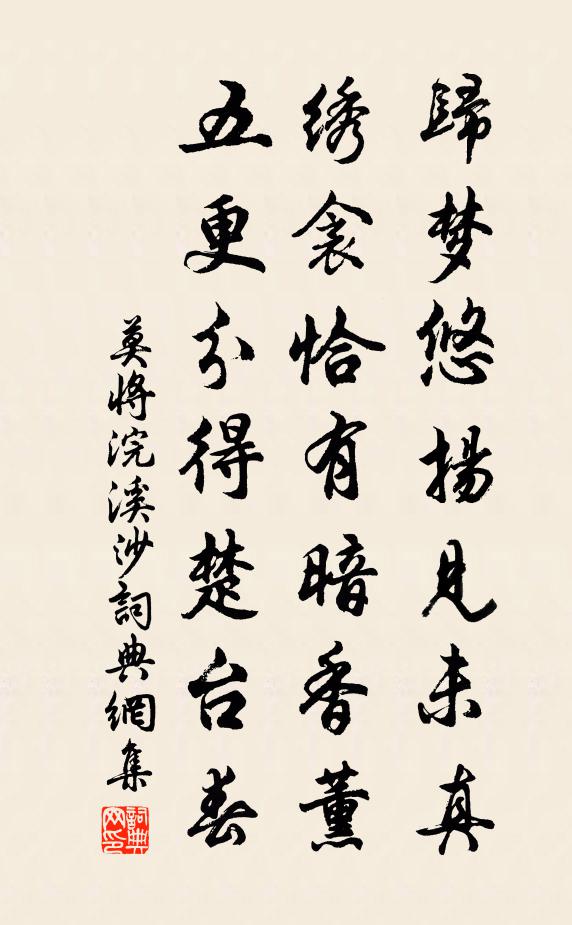 歸梦悠揚見未真
绣衾恰有暗香薰
五更分得楚台春
莫將浣溪沙詞典網集
詞典网印